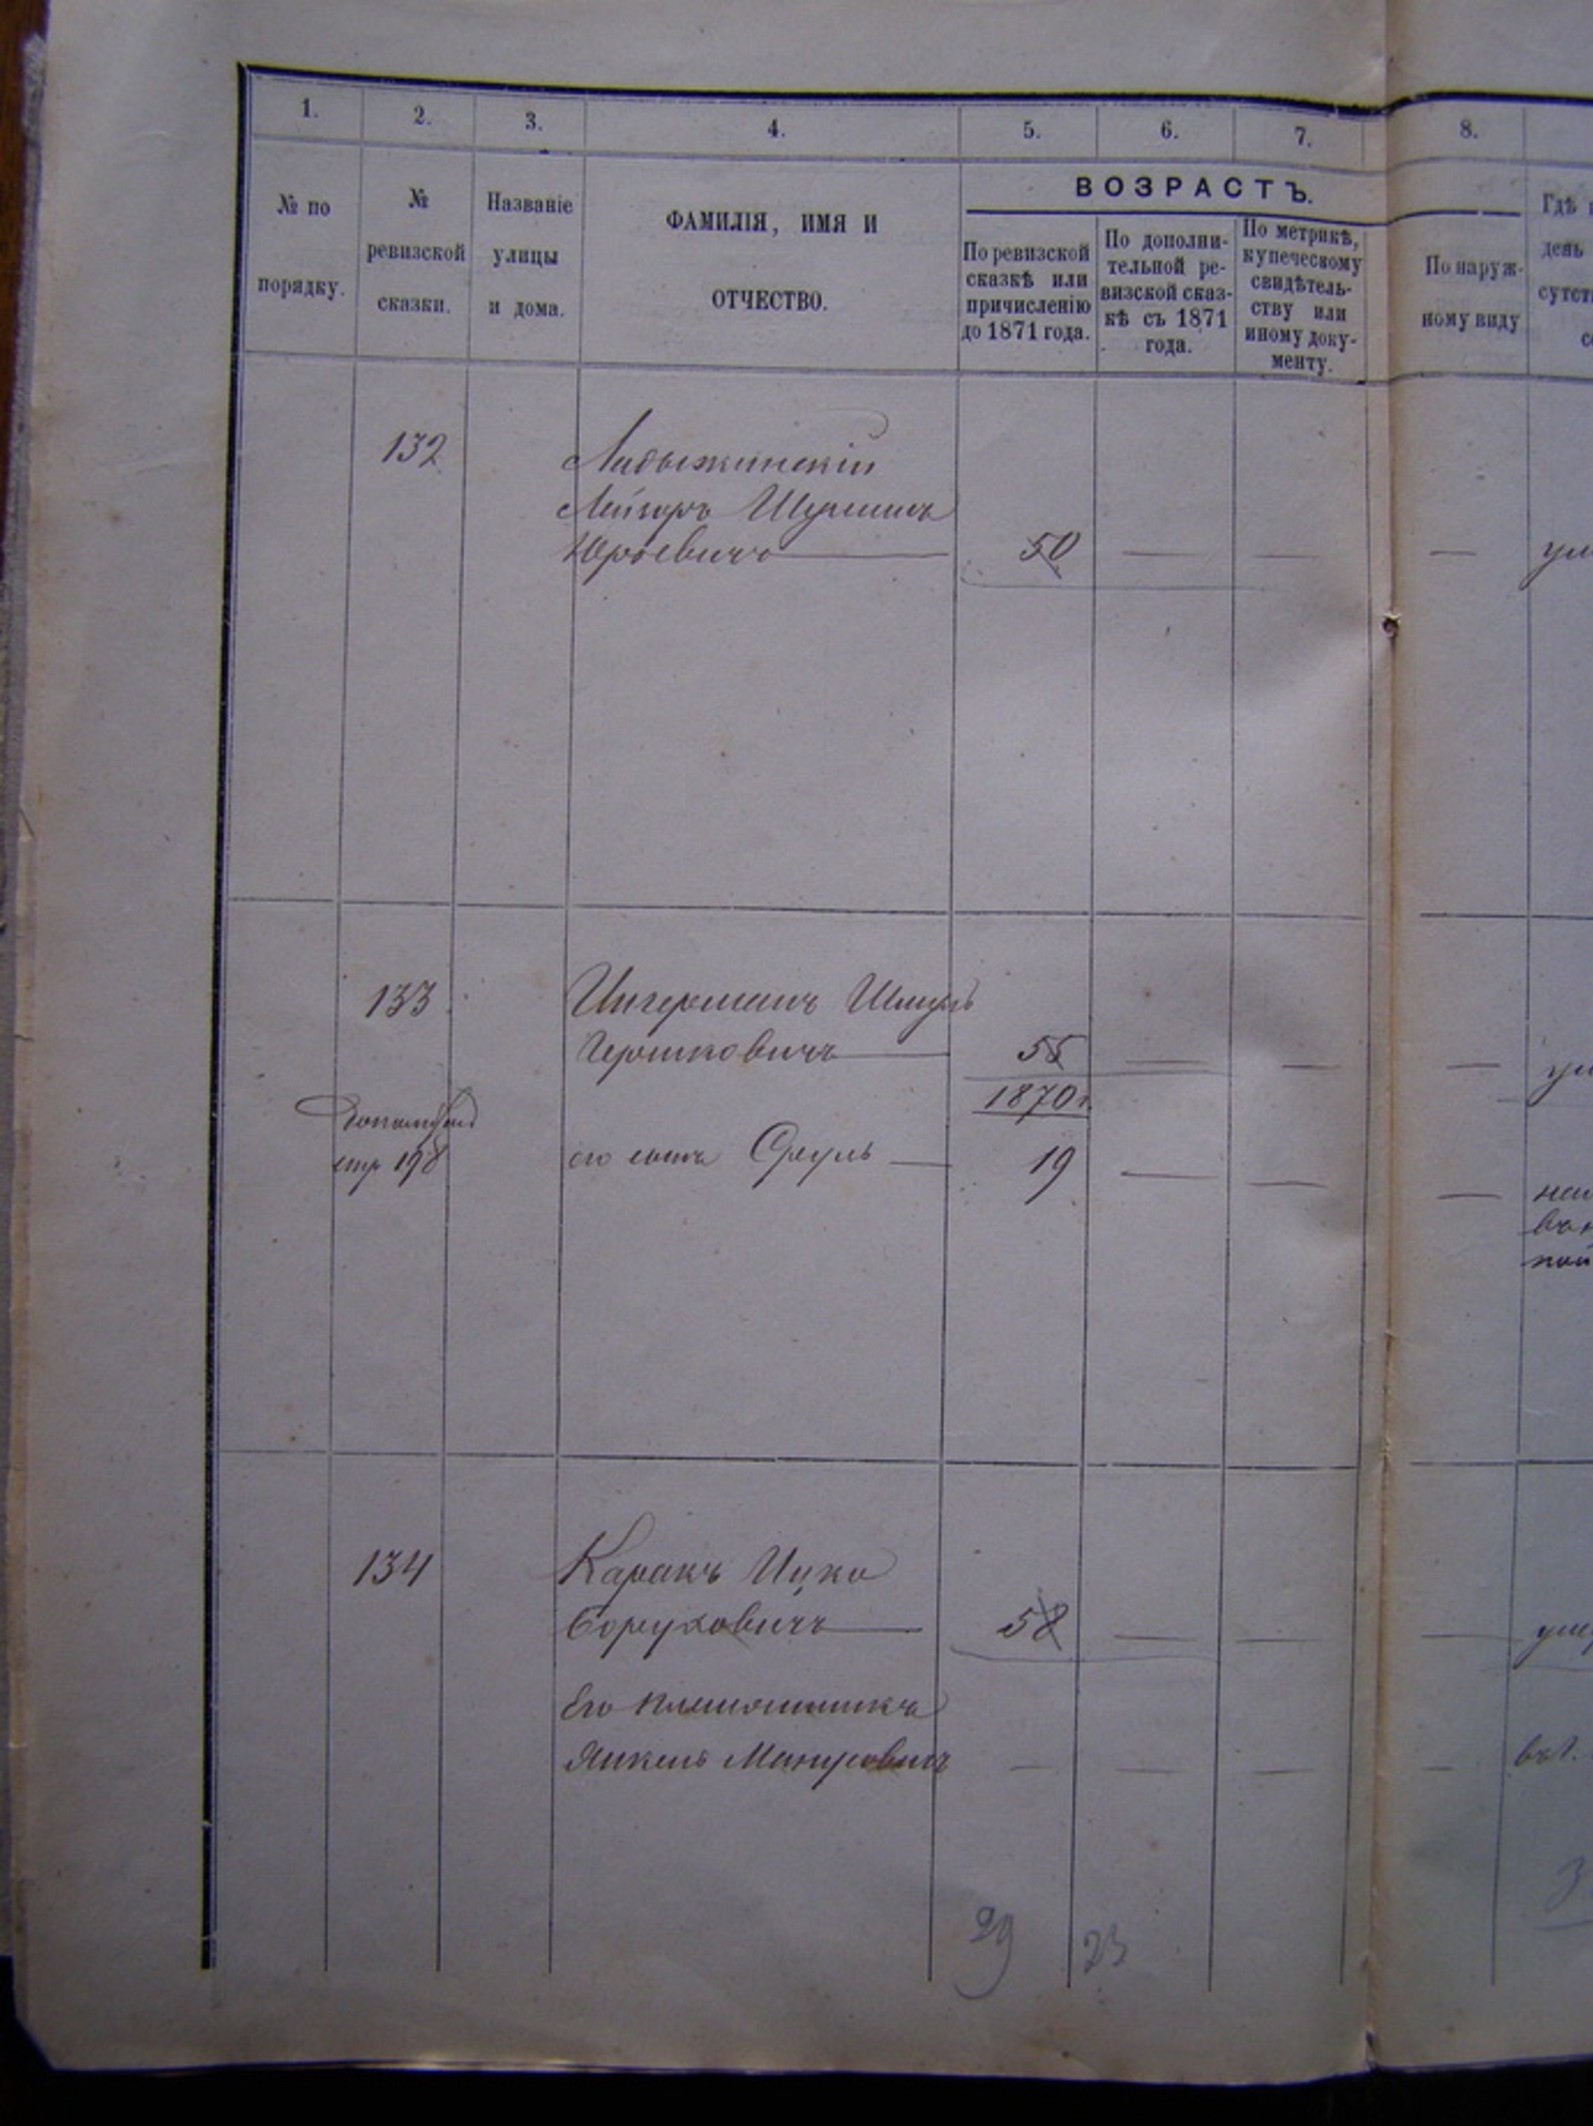 1. 2. 3. 4. 5. 6. 7. 8.
№ по порядку.
№ ревизской сказки.
Названіе улицы и дома.
ФАМИЛІЯ, ИМЯ И
ОТЧЕСТВО.
ВОЗРАСТЪ.
По ревизской
сказкѣ или
причисленію
до 1871 года.
По дополни-
тельной ре-
визской сказ-
кѣ съ 1871
года.
По метрикѣ,
купеческому
свидѣтель-
ству или
иному доку-
менту.
По наруж-
ному виду
Гдѣ
день
сутст
132 Ладыжинскій
Лейзоръ
Юрьевичъ — 50 — — — ум
133 Ингерманъ Шмуль
Гершковичъ — 55 — — — ум
1870 г.
стр 198 его сынъ Сруль — 19 — — —
134 Каракъ Ицко
Боруховичъ — 58 — — — уме
Его племянникъ
Янкель — — — —
29 23
3